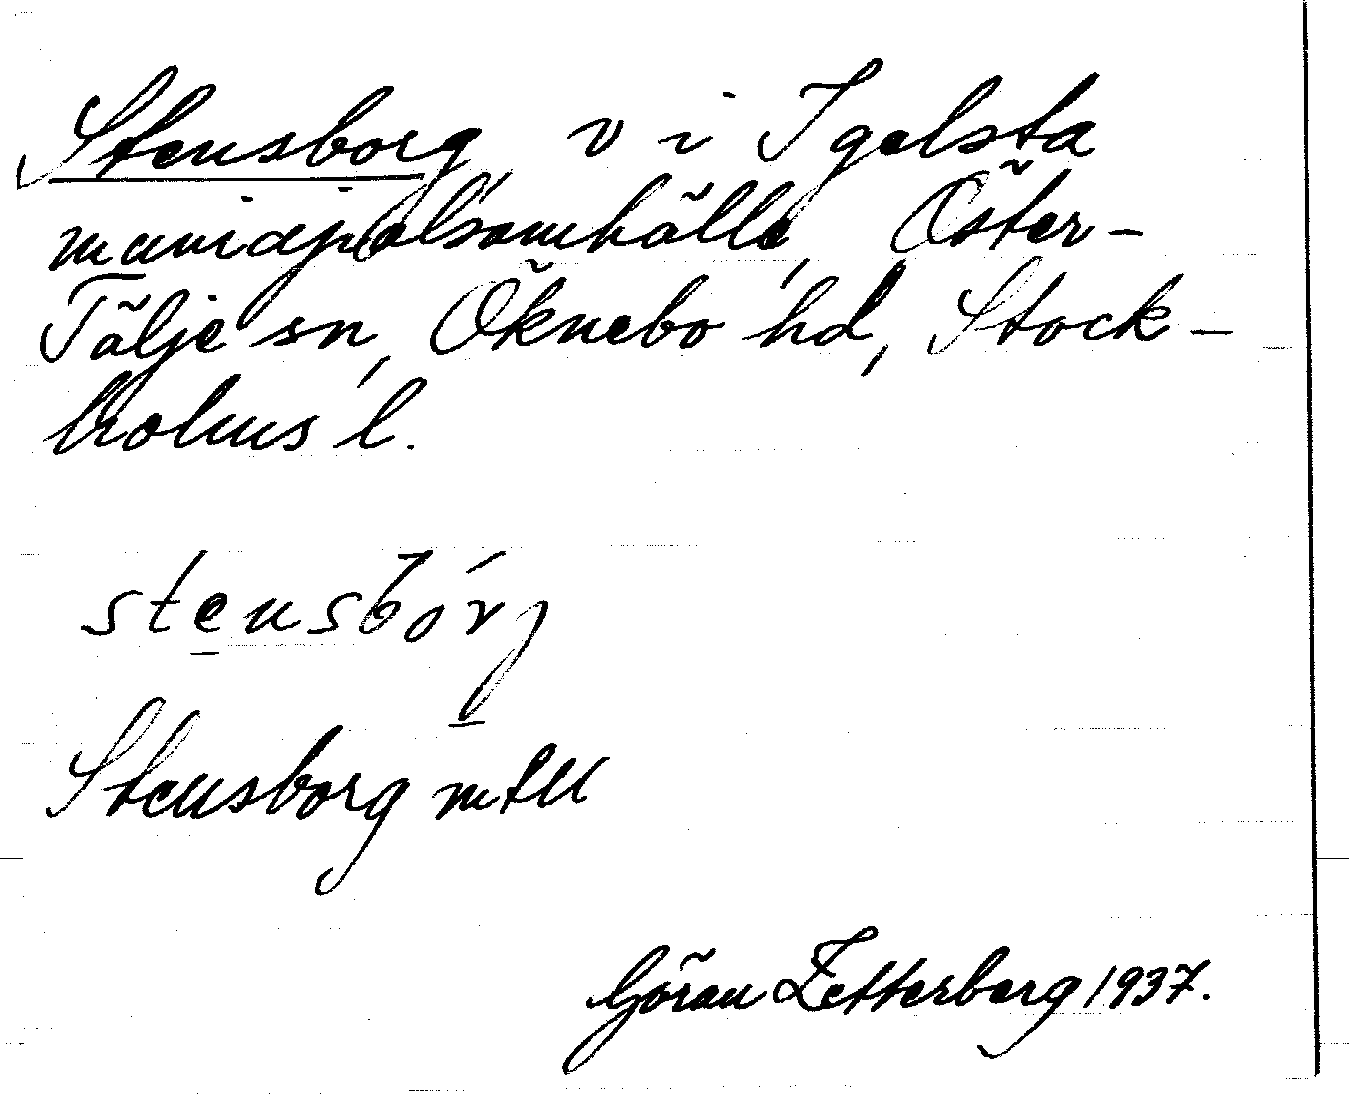 Stensborg v i Igelsta
municipalsamhälle, Öster-
Tälje sn, Öknebo hd, Stock-
holms l.
stensbórj
Stensborg mtll
Göran Zetterberg 1937.